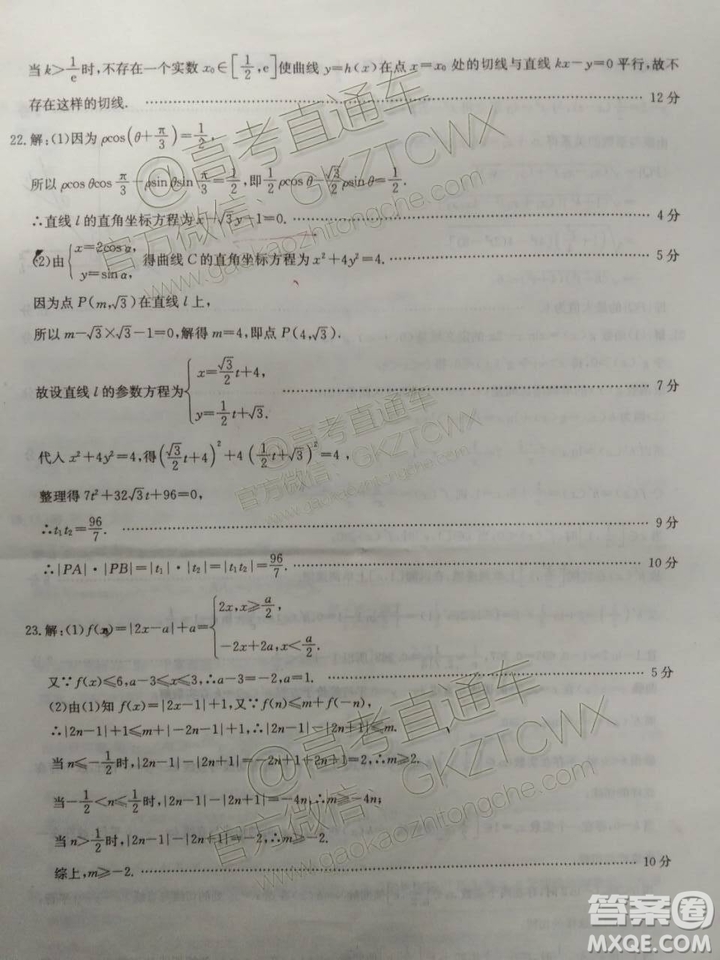 当 k>1/e 时,不存在一个实数 x₀∈[1/2,e]使曲线 y=h(x)在点 x=x₀ 处的切线与直线 kx-y=0 平行,故不
存在这样的切线. 12 分
22.解:(1)因为 ρcos(θ+π/3)=1/2,
所以 ρcosθcos π/3-ρsinθsin π/3=1/2,即 1/2ρcosθ-√3/2ρsinθ=1/2.
∴直线 l 的直角坐标方程为 x-√3y-1=0. 4 分
(2)由{x=2cosα, y=sinα, 得曲线 C 的直角坐标方程为 x²+4y²=4. 5 分
因为点 P(m,√3)在直线 l 上,
所以 m-√3×√3-1=0,解得 m=4,即点 P(4,√3).
故设直线 l 的参数方程为{x=√3/2t+4, y=1/2t+√3. 7 分
代入 x²+4y²=4,得(√3/2t+4)²+4(1/2t+√3)²=4,
整理得 7t²+32√3t+96=0,
∴t₁t₂=96/7. 9 分
∴|PA|·|PB|=|t₁|·|t₂|=|t₁t₂|=96/7. 10 分
23.解:(1)f(x)=|2x-a|+a={2x,x≥a/2, -2x+2a,x<a/2.
又∵f(x)≤6,a-3≤x≤3,∴a-3=-2,a=1. 5 分
(2)由(1)知 f(x)=|2x-1|+1,又∵f(n)≤m+f(-n),
∴|2n-1|+1≤m+|-2n-1|+1,∴|2n-1|-|2n+1|≤m.
当 n≤-1/2时,|2n-1|-|2n+1|=2,∴m≥2.
当-1/2<n≤1/2时,|2n-1|-|2n+1|=-4n,∴m≥-4n;
当 n>1/2时,|2n-1|-|2n+1|=-2,∴m≥-2.
综上,m≥-2. 10 分
@高考直通车
官方微信: GKZTCWX
www.gaokaozhitongche.com
@高考直通车
官方微信: GKZTCWX
@高考直通车
官方微信: GKZTCWX
www.gaokaozhitongche.com
答案圈
MXQE.COM